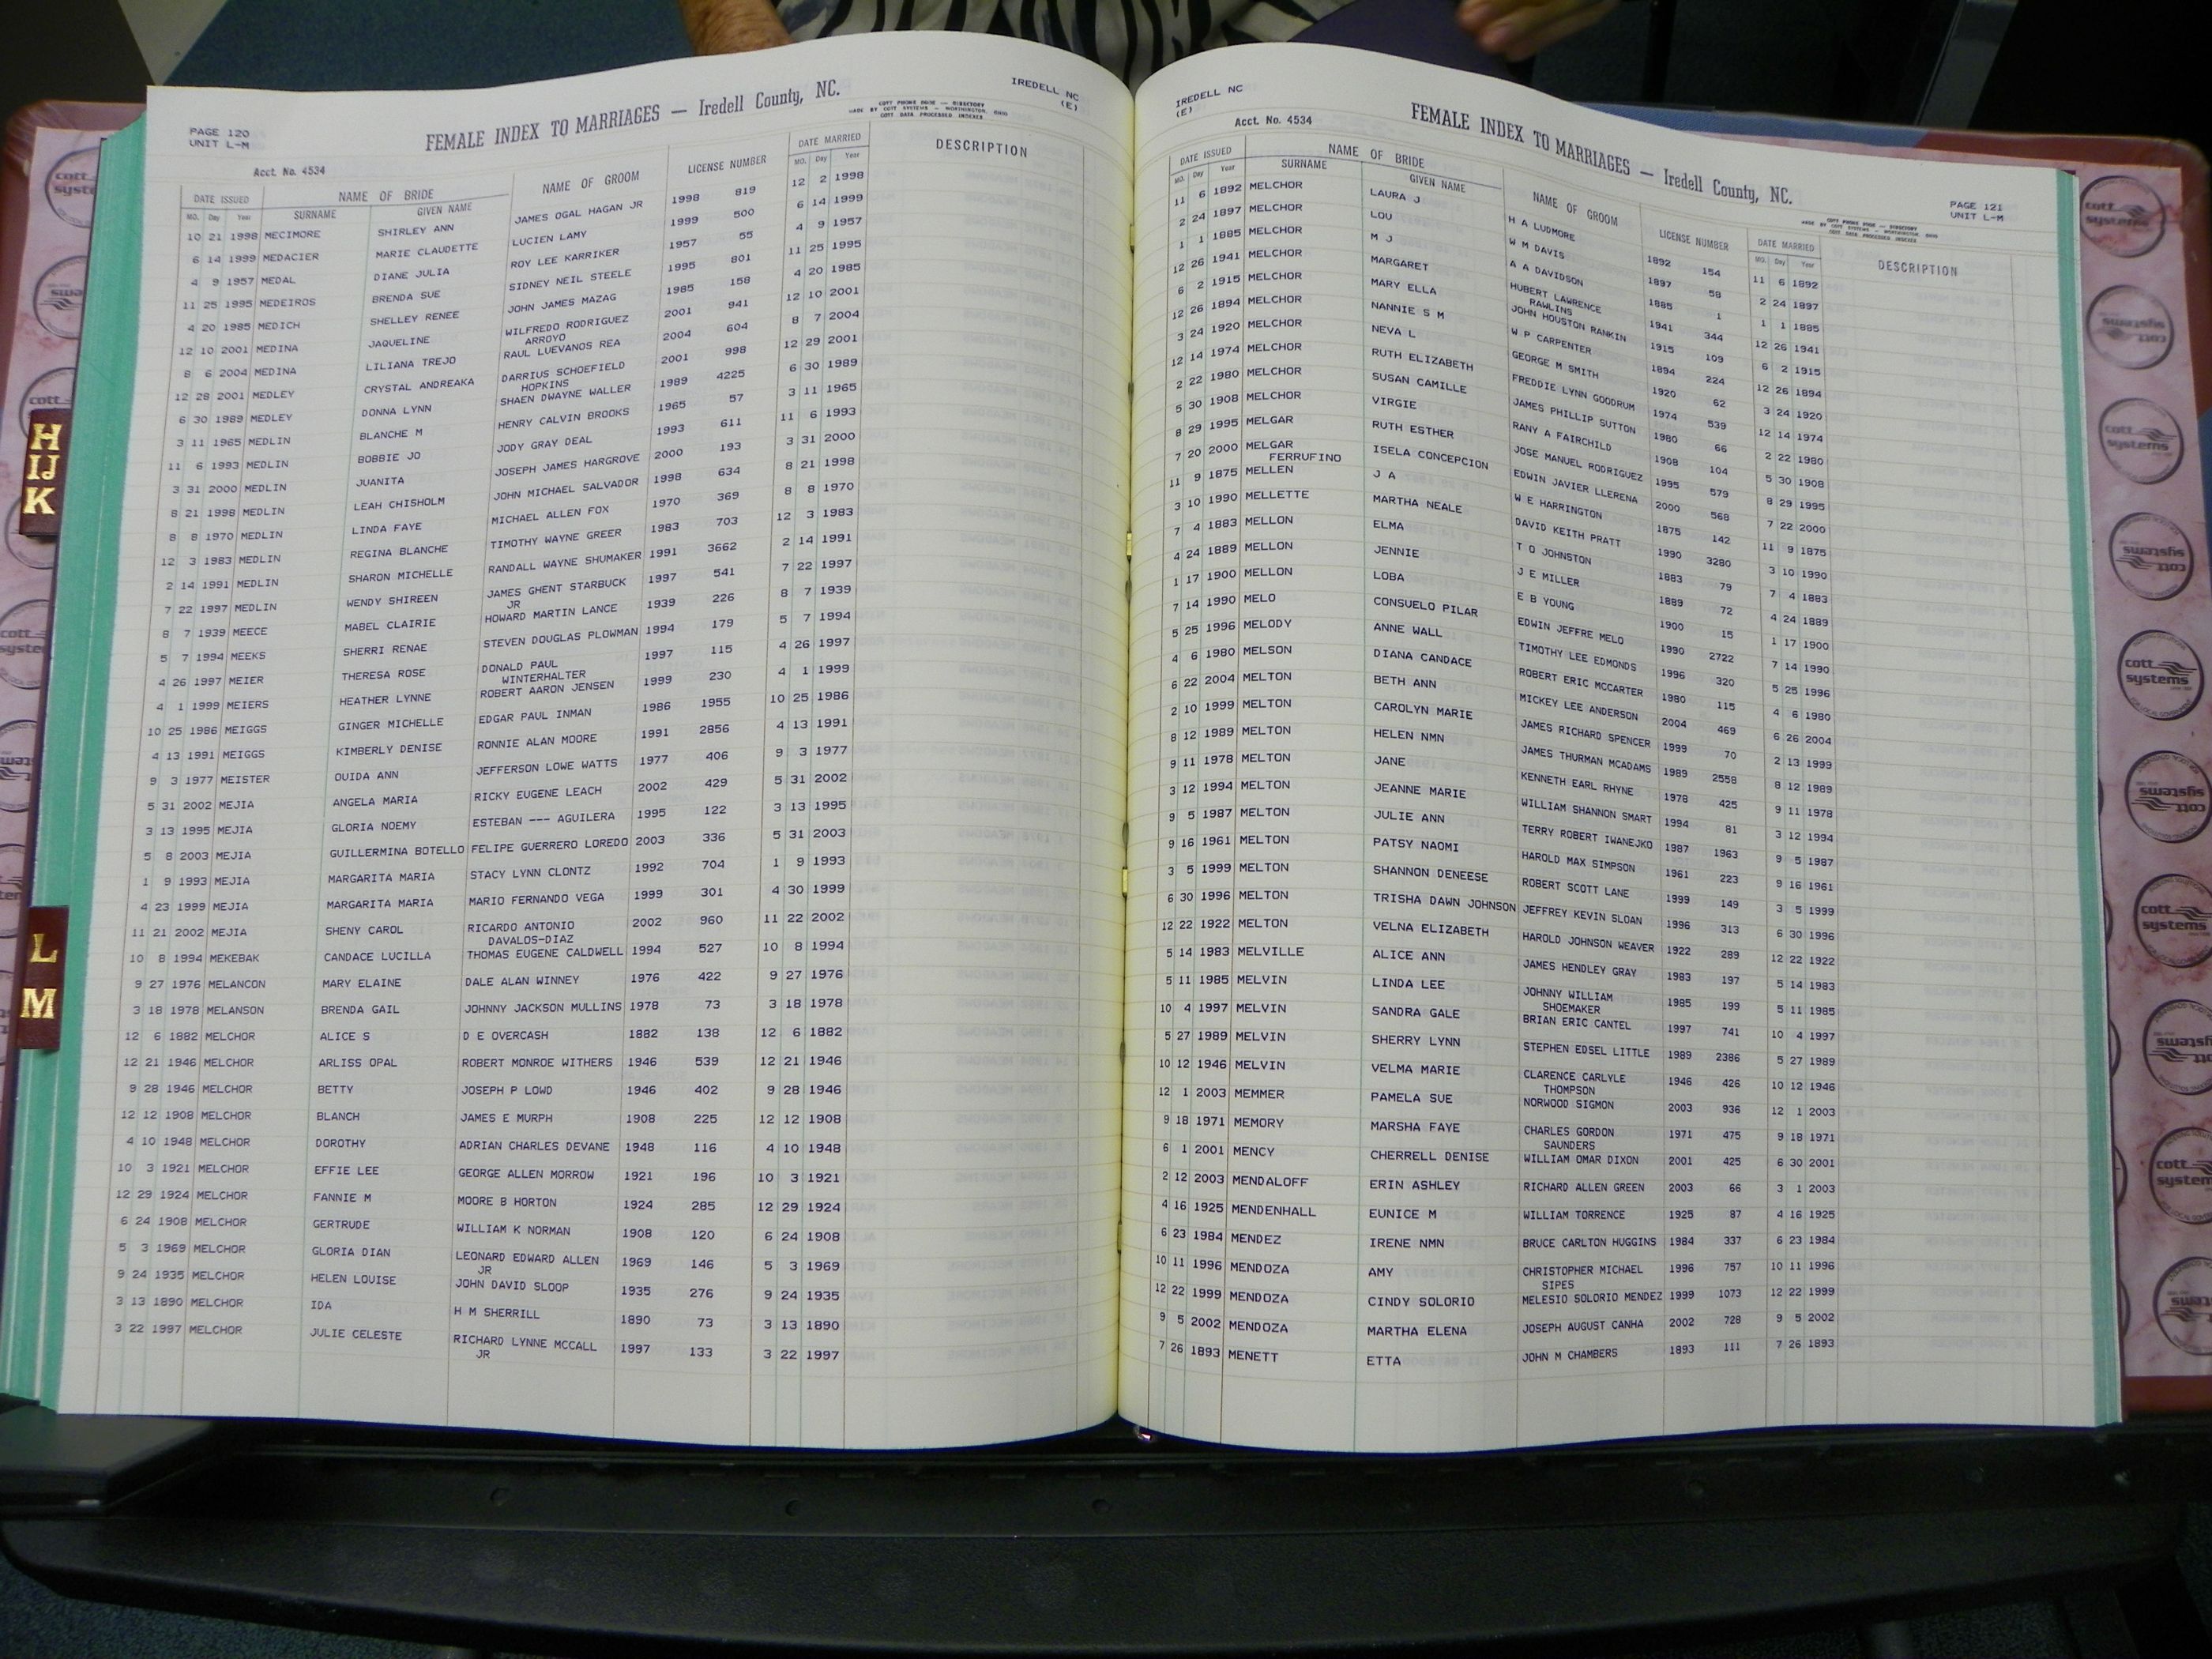 IREDELL NC
(E)
PAGE 120
UNIT L-M
FEMALE INDEX TO MARRIAGES — Iredell County, NC.
COTT PHONE BOOK — DIRECTORY
MADE BY COTT SYSTEMS — WORTHINGTON, OHIO
COTT DATA PROCESSED INDEXES
Acct. No. 4534
DATE ISSUED NAME OF BRIDE NAME OF GROOM LICENSE NUMBER DATE MARRIED DESCRIPTION
MO. Day Year SURNAME GIVEN NAME MO. Day Year
10 21 1998 MECIMORE SHIRLEY ANN JAMES OGAL HAGAN JR 1998 819 12 2 1998
6 14 1999 MEDACIER MARIE CLAUDETTE LUCIEN LAMY 1999 500 6 14 1999
4 9 1957 MEDAL DIANE JULIA ROY LEE KARRIKER 1957 55 4 9 1957
11 25 1995 MEDEIROS BRENDA SUE SIDNEY NEIL STEELE 1995 801 11 25 1995
4 20 1985 MEDICH SHELLEY RENEE JOHN JAMES MAZAG 1985 158 4 20 1985
12 10 2001 MEDINA JAQUELINE WILFREDO RODRIGUEZ 2001 941 12 10 2001
ARROYO
8 6 2004 MEDINA LILIANA TREJO RAUL LUEVANOS REA 2004 604 8 7 2004
12 28 2001 MEDLEY CRYSTAL ANDREAKA DARRIUS SCHOEFIELD 2001 998 12 29 2001
HOPKINS
6 30 1989 MEDLEY DONNA LYNN SHAEN DWAYNE WALLER 1989 4225 6 30 1989
3 11 1965 MEDLIN BLANCHE M HENRY CALVIN BROOKS 1965 57 3 11 1965
11 6 1993 MEDLIN BOBBIE JO JODY GRAY DEAL 1993 611 11 6 1993
3 31 2000 MEDLIN JUANITA JOSEPH JAMES HARGROVE 2000 193 3 31 2000
8 21 1998 MEDLIN LEAH CHISHOLM JOHN MICHAEL SALVADOR 1998 634 8 21 1998
8 8 1970 MEDLIN LINDA FAYE MICHAEL ALLEN FOX 1970 369 8 8 1970
12 3 1983 MEDLIN REGINA BLANCHE TIMOTHY WAYNE GREER 1983 703 12 3 1983
2 14 1991 MEDLIN SHARON MICHELLE RANDALL WAYNE SHUMAKER 1991 3662 2 14 1991
7 22 1997 MEDLIN WENDY SHIREEN JAMES GHENT STARBUCK 1997 541 7 22 1997
JR
8 7 1939 MEECE MABEL CLAIRIE HOWARD MARTIN LANCE 1939 226 8 7 1939
5 7 1994 MEEKS SHERRI RENAE STEVEN DOUGLAS PLOWMAN 1994 179 5 7 1994
4 26 1997 MEIER THERESA ROSE DONALD PAUL 1997 115 4 26 1997
WINTERHALTER
4 1 1999 MEIERS HEATHER LYNNE ROBERT AARON JENSEN 1999 230 4 1 1999
10 25 1986 MEIGGS GINGER MICHELLE EDGAR PAUL INMAN 1986 1955 10 25 1986
4 13 1991 MEIGGS KIMBERLY DENISE RONNIE ALAN MOORE 1991 2856 4 13 1991
9 3 1977 MEISTER OUIDA ANN JEFFERSON LOWE WATTS 1977 406 9 3 1977
5 31 2002 MEJIA ANGELA MARIA RICKY EUGENE LEACH 2002 429 5 31 2002
3 13 1995 MEJIA GLORIA NOEMY ESTEBAN --- AGUILERA 1995 122 3 13 1995
5 8 2003 MEJIA GUILLERMINA BOTELLO FELIPE GUERRERO LOREDO 2003 336 5 31 2003
1 9 1993 MEJIA MARGARITA MARIA STACY LYNN CLONTZ 1992 704 1 9 1993
4 23 1999 MEJIA MARGARITA MARIA MARIO FERNANDO VEGA 1999 301 4 30 1999
11 21 2002 MEJIA SHENY CAROL RICARDO ANTONIO 2002 960 11 22 2002
DAVALOS-DIAZ
10 8 1994 MEKEBAK CANDACE LUCILLA THOMAS EUGENE CALDWELL 1994 527 10 8 1994
9 27 1976 MELANCON MARY ELAINE DALE ALAN WINNEY 1976 422 9 27 1976
3 18 1978 MELANSON BRENDA GAIL JOHNNY JACKSON MULLINS 1978 73 3 18 1978
12 6 1882 MELCHOR ALICE S D E OVERCASH 1882 138 12 6 1882
12 21 1946 MELCHOR ARLISS OPAL ROBERT MONROE WITHERS 1946 539 12 21 1946
9 28 1946 MELCHOR BETTY JOSEPH P LOWD 1946 402 9 28 1946
12 12 1908 MELCHOR BLANCH JAMES E MURPH 1908 225 12 12 1908
4 10 1948 MELCHOR DOROTHY ADRIAN CHARLES DEVANE 1948 116 4 10 1948
10 3 1921 MELCHOR EFFIE LEE GEORGE ALLEN MORROW 1921 196 10 3 1921
12 29 1924 MELCHOR FANNIE M MOORE B HORTON 1924 285 12 29 1924
6 24 1908 MELCHOR GERTRUDE WILLIAM K NORMAN 1908 120 6 24 1908
5 3 1969 MELCHOR GLORIA DIAN LEONARD EDWARD ALLEN 1969 146 5 3 1969
JR
9 24 1935 MELCHOR HELEN LOUISE JOHN DAVID SLOOP 1935 276 9 24 1935
3 13 1890 MELCHOR IDA H M SHERRILL 1890 73 3 13 1890
3 22 1997 MELCHOR JULIE CELESTE RICHARD LYNNE MCCALL 1997 133 3 22 1997
JR
IREDELL NC
(E)
Acct. No. 4534
FEMALE INDEX TO MARRIAGES — Iredell County, NC.
PAGE 121
UNIT L-M
COTT PHONE BOOK — DIRECTORY
MADE BY COTT SYSTEMS — WORTHINGTON, OHIO
COTT DATA PROCESSED INDEXES
DATE ISSUED NAME OF BRIDE NAME OF GROOM LICENSE NUMBER DATE MARRIED DESCRIPTION
MO. Day Year SURNAME GIVEN NAME MO. Day Year
11 6 1892 MELCHOR LAURA J H A LUDMORE 1892 154 11 6 1892
2 24 1897 MELCHOR LOU W M DAVIS 1897 58 2 24 1897
1 1 1885 MELCHOR M J A A DAVIDSON 1885 1 1 1 1885
12 26 1941 MELCHOR MARGARET HUBERT LAWRENCE 1941 344 12 26 1941
RAWLINS
6 2 1915 MELCHOR MARY ELLA JOHN HOUSTON RANKIN 1915 109 6 2 1915
12 26 1894 MELCHOR NANNIE S M W P CARPENTER 1894 224 12 26 1894
3 24 1920 MELCHOR NEVA L GEORGE M SMITH 1920 62 3 24 1920
12 14 1974 MELCHOR RUTH ELIZABETH FREDDIE LYNN GOODRUM 1974 539 12 14 1974
2 22 1980 MELCHOR SUSAN CAMILLE JAMES PHILLIP SUTTON 1980 66 2 22 1980
5 30 1908 MELCHOR VIRGIE RANY A FAIRCHILD 1908 104 5 30 1908
8 29 1995 MELGAR RUTH ESTHER JOSE MANUEL RODRIGUEZ 1995 579 8 29 1995
7 20 2000 MELGAR ISELA CONCEPCION EDWIN JAVIER LLERENA 2000 568 7 22 2000
FERRUFINO
11 9 1875 MELLEN J A W E HARRINGTON 1875 142 11 9 1875
3 10 1990 MELLETTE MARTHA NEALE DAVID KEITH PRATT 1990 3280 3 10 1990
7 4 1883 MELLON ELMA T O JOHNSTON 1883 79 7 4 1883
4 24 1889 MELLON JENNIE J E MILLER 1889 72 4 24 1889
1 17 1900 MELLON LOBA E B YOUNG 1900 15 1 17 1900
7 14 1990 MELO CONSUELO PILAR EDWIN JEFFRE MELO 1990 2722 7 14 1990
5 25 1996 MELODY ANNE WALL TIMOTHY LEE EDMONDS 1996 320 5 25 1996
4 6 1980 MELSON DIANA CANDACE ROBERT ERIC MCCARTER 1980 115 4 6 1980
6 22 2004 MELTON BETH ANN MICKEY LEE ANDERSON 2004 469 6 26 2004
2 10 1999 MELTON CAROLYN MARIE JAMES RICHARD SPENCER 1999 70 2 13 1999
8 12 1989 MELTON HELEN NMN JAMES THURMAN MCADAMS 1989 2558 8 12 1989
9 11 1978 MELTON JANE KENNETH EARL RHYNE 1978 425 9 11 1978
3 12 1994 MELTON JEANNE MARIE WILLIAM SHANNON SMART 1994 81 3 12 1994
9 5 1987 MELTON JULIE ANN TERRY ROBERT IWANEJKO 1987 1963 9 5 1987
9 16 1961 MELTON PATSY NAOMI HAROLD MAX SIMPSON 1961 223 9 16 1961
3 5 1999 MELTON SHANNON DENEESE ROBERT SCOTT LANE 1999 149 3 5 1999
6 30 1996 MELTON TRISHA DAWN JOHNSON JEFFREY KEVIN SLOAN 1996 313 6 30 1996
12 22 1922 MELTON VELNA ELIZABETH HAROLD JOHNSON WEAVER 1922 289 12 22 1922
5 14 1983 MELVILLE ALICE ANN JAMES HENDLEY GRAY 1983 197 5 14 1983
5 11 1985 MELVIN LINDA LEE JOHNNY WILLIAM 1985 199 5 11 1985
SHOEMAKER
10 4 1997 MELVIN SANDRA GALE BRIAN ERIC CANTEL 1997 741 10 4 1997
5 27 1989 MELVIN SHERRY LYNN STEPHEN EDSEL LITTLE 1989 2386 5 27 1989
10 12 1946 MELVIN VELMA MARIE CLARENCE CARLYLE 1946 426 10 12 1946
THOMPSON
12 1 2003 MEMMER PAMELA SUE NORWOOD SIGMON 2003 936 12 1 2003
9 18 1971 MEMORY MARSHA FAYE CHARLES GORDON 1971 475 9 18 1971
SAUNDERS
6 1 2001 MENCY CHERRELL DENISE WILLIAM OMAR DIXON 2001 425 6 30 2001
2 12 2003 MENDALOFF ERIN ASHLEY RICHARD ALLEN GREEN 2003 66 3 1 2003
4 16 1925 MENDENHALL EUNICE M WILLIAM TORRENCE 1925 87 4 16 1925
6 23 1984 MENDEZ IRENE NMN BRUCE CARLTON HUGGINS 1984 337 6 23 1984
10 11 1996 MENDOZA AMY CHRISTOPHER MICHAEL 1996 757 10 11 1996
SIPES
12 22 1999 MENDOZA CINDY SOLORIO MELESIO SOLORIO MENDEZ 1999 1073 12 22 1999
9 5 2002 MENDOZA MARTHA ELENA JOSEPH AUGUST CANHA 2002 728 9 5 2002
7 26 1893 MENETT ETTA JOHN M CHAMBERS 1893 111 7 26 1893
H
IJ
K
L
M
cott systems
cott systems
cott systems
cott systems
cott systems
cott systems